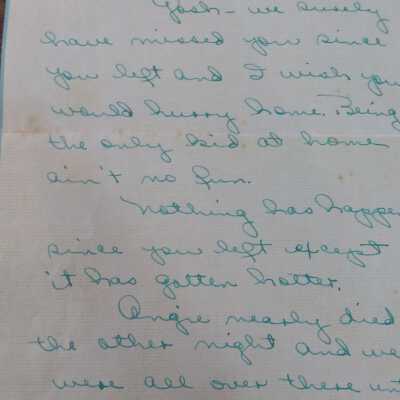 Gosh - we surely
have missed you since
you left and I wish you
would hurry home. Being
the only kid at home
ain't no fun.
Nothing has happen
since you left except
it has gotten hotter.
Angie nearly died
the other night and we
were all over there unt